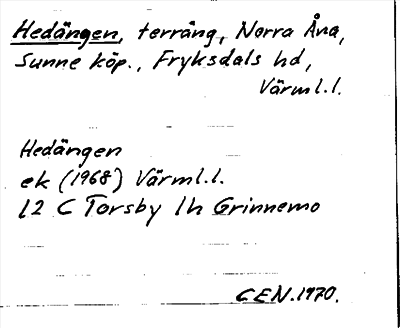 Hedängen, terräng, Norra Åna,
Sunne köp., Fryksdals hd,
Värml.l.
Hedängen
ek (1968) Värml.l.
12 C Torsby 1h Grinnemo
CEN.1970.